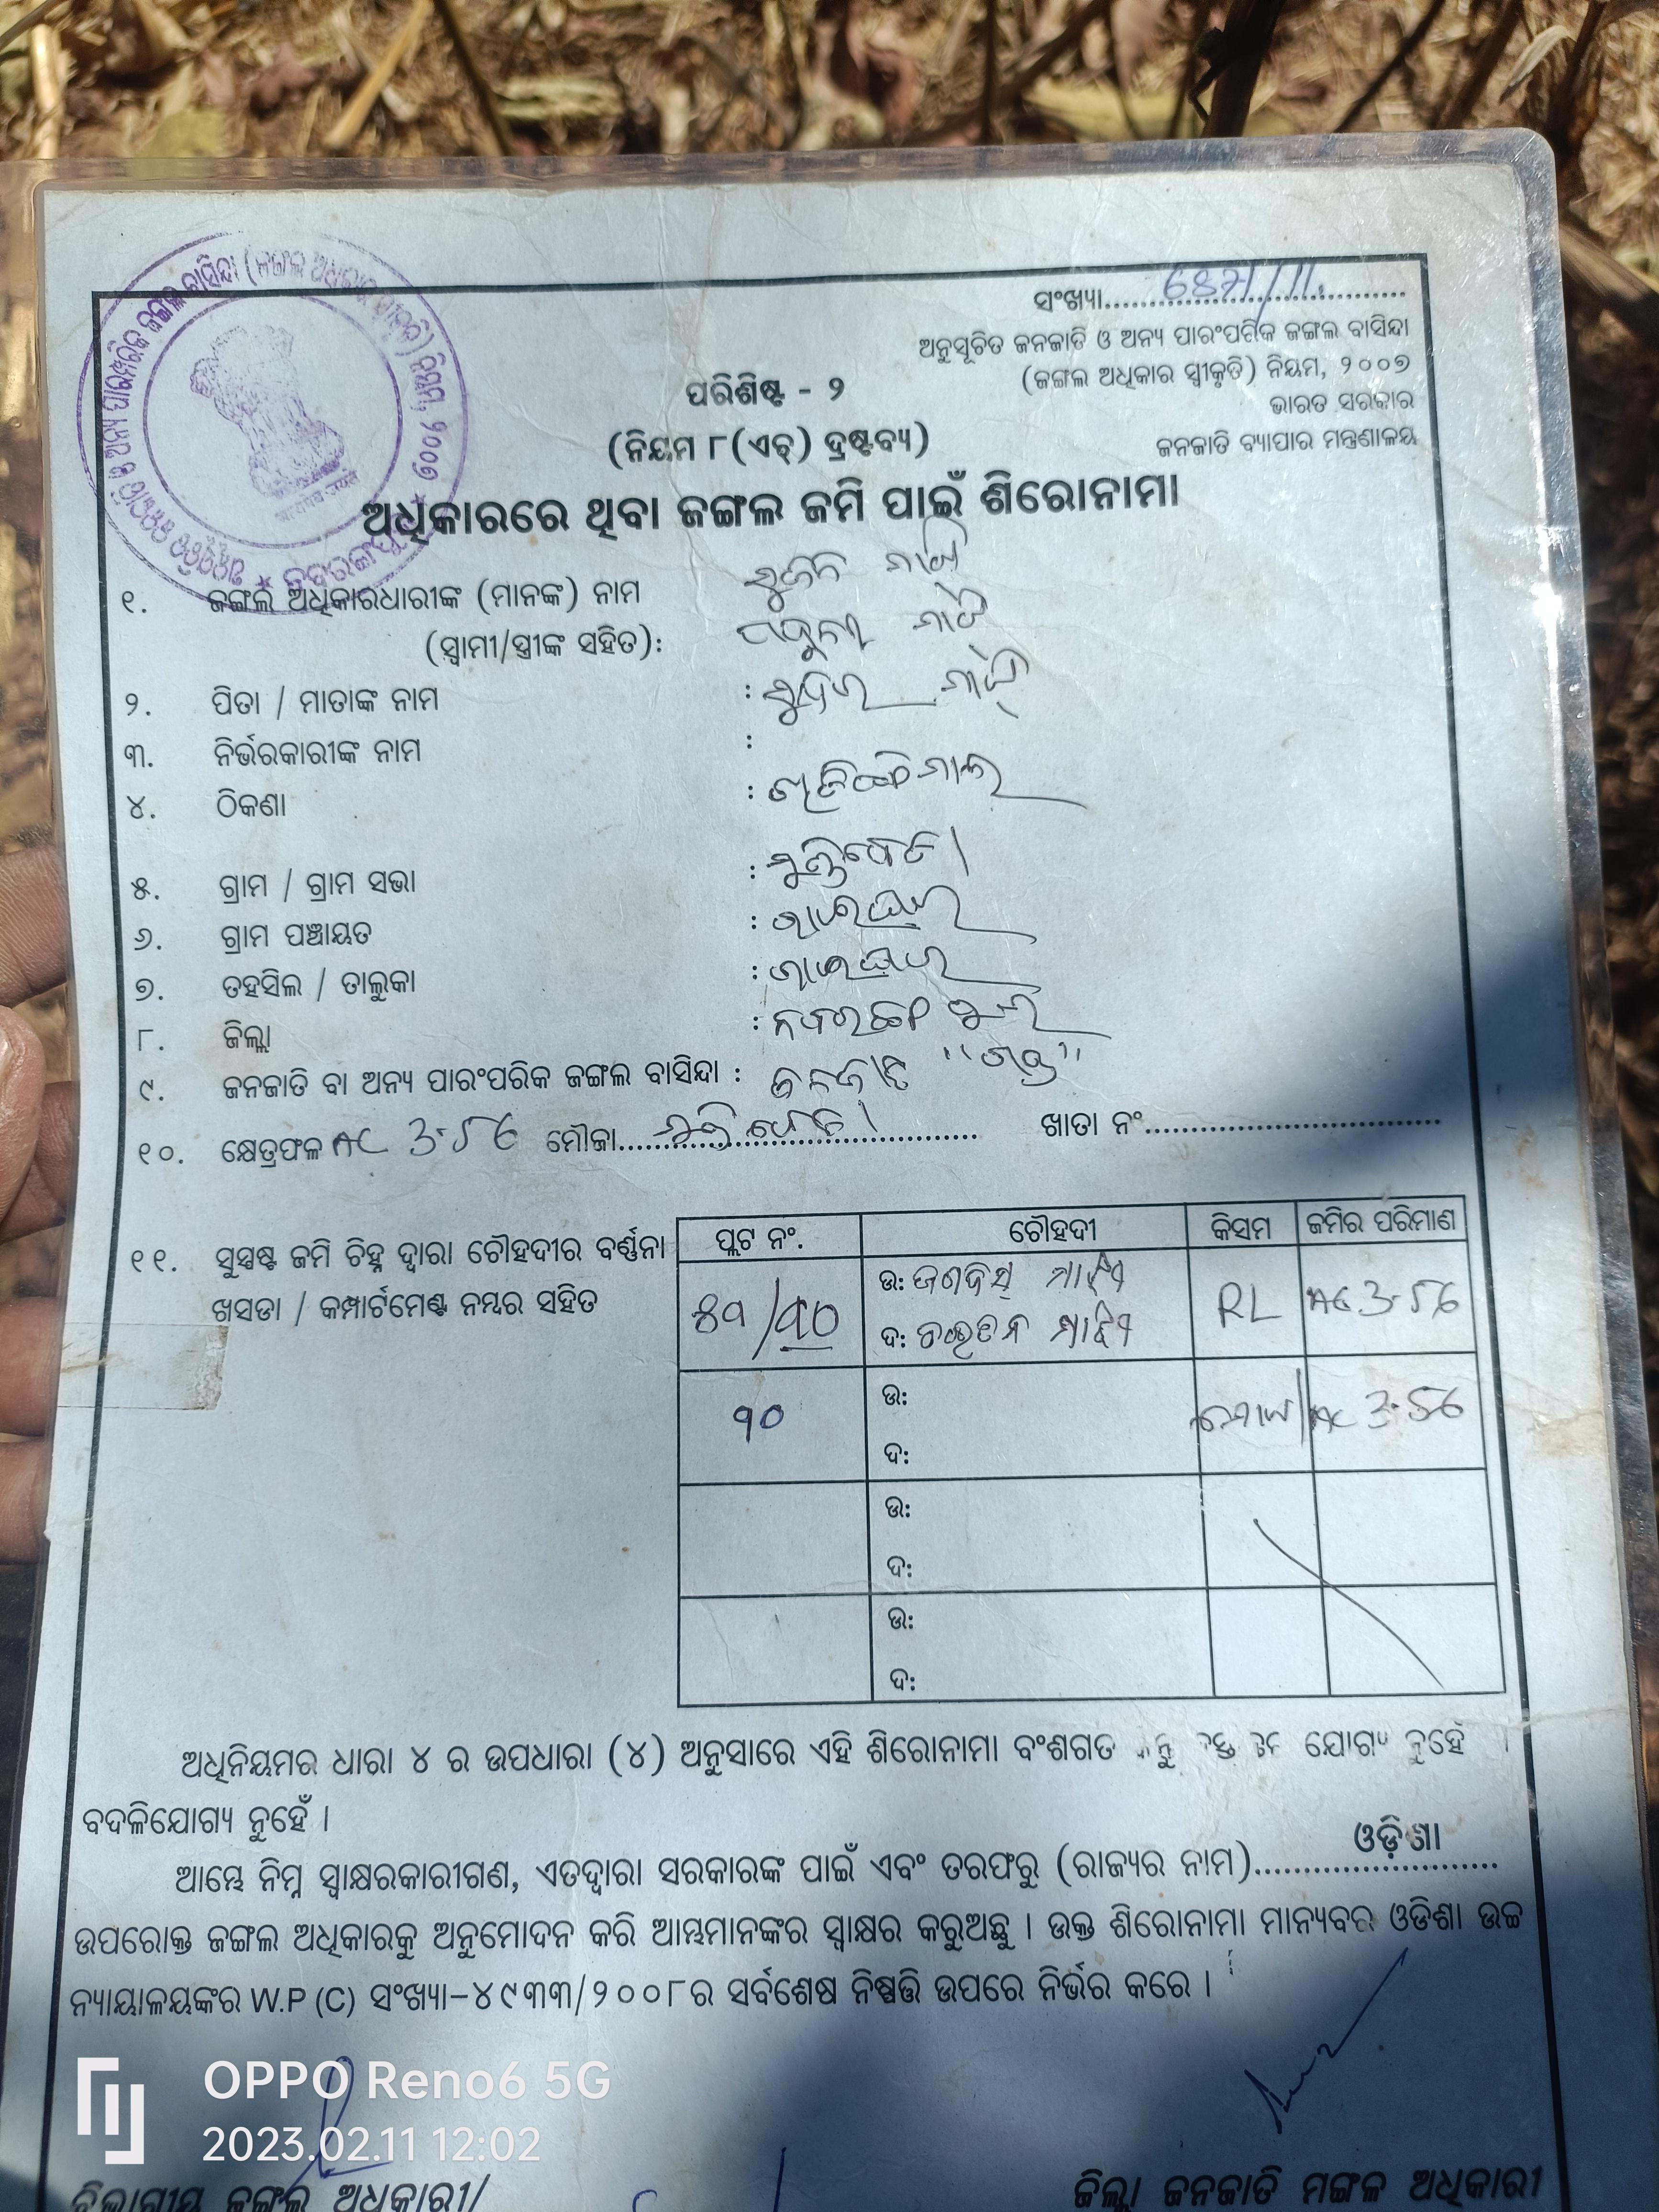 ସଂଖ୍ୟା
ଅନୁସୂଚିତ ଜନଜାତି ଓ ଅନ୍ୟ ପାରଂପରିକ ଜଙ୍ଗଲ ବାସିନ୍ଦା
(ଜଙ୍ଗଲ ଅଧିକାର ସ୍ୱୀକୃତି) ନିୟମ, ୨୦୦୭
ଭାରତ ସରକାର
ଜନଜାତି ବ୍ୟାପାର ମନ୍ତ୍ରଣାଳୟ
ପରିଶିଷ୍ଟ - ୨
(ନିୟମ ୮(ଏଚ୍) ଦ୍ରଷ୍ଟବ୍ୟ)
ଅଧିକାରରେ ଥିବା ଜଙ୍ଗଲ ଜମି ପାଇଁ ଶିରୋନାମା
୧. ଜଙ୍ଗଲ ଅଧିକାରଧାରୀଙ୍କ (ମାନଙ୍କ) ନାମ
(ସ୍ୱାମୀ/ସ୍ତ୍ରୀଙ୍କ ସହିତ):
୨. ପିତା / ମାତାଙ୍କ ନାମ :
୩. ନିର୍ଭରକାରୀଙ୍କ ନାମ :
୪. ଠିକଣା :
୫. ଗ୍ରାମ / ଗ୍ରାମ ସଭା :
୬. ଗ୍ରାମ ପଞ୍ଚାୟତ : ରାଇଘର
୭. ତହସିଲ / ତାଲୁକା : ରାଇଘର
୮. ଜିଲ୍ଲା : ନବରଙ୍ଗପୁର
୯. ଜନଜାତି ବା ଅନ୍ୟ ପାରଂପରିକ ଜଙ୍ଗଲ ବାସିନ୍ଦା : ଜନଜାତି "ଗଣ୍ଡ"
୧୦. କ୍ଷେତ୍ରଫଳ AC 3.56 ମୌଜା ଖାତା ନଂ
୧୧. ସୁସ୍ପଷ୍ଟ ଜମି ଚିହ୍ନ ଦ୍ୱାରା ଚୌହଦୀର ବର୍ଣ୍ଣନା
ଖସଡା / କମ୍ପାର୍ଟମେଣ୍ଟ ନମ୍ବର ସହିତ
ପ୍ଲଟ ନଂ. ଚୌହଦୀ କିସମ ଜମିର ପରିମାଣ
ଉ: ମାଝି RL AC 3.56
ଦ: ମାଝି
୩୦ ଉ: AC 3.56
ଦ:
ଉ:
ଦ:
ଉ:
ଦ:
ଅଧିନିୟମର ଧାରା ୪ ର ଉପଧାରା (୪) ଅନୁସାରେ ଏହି ଶିରୋନାମା ବଂଶଗତ ଯୋଗ୍ୟ ନୁହେଁ
ବଦଳିଯୋଗ୍ୟ ନୁହେଁ ।
ଆମ୍ଭେ ନିମ୍ନ ସ୍ୱାକ୍ଷରକାରୀଗଣ, ଏତଦ୍ଦ୍ୱାରା ସରକାରଙ୍କ ପାଇଁ ଏବଂ ତରଫରୁ (ରାଜ୍ୟର ନାମ) ଓଡ଼ିଶା
ଉପରୋକ୍ତ ଜଙ୍ଗଲ ଅଧିକାରକୁ ଅନୁମୋଦନ କରି ଆମ୍ଭମାନଙ୍କର ସ୍ୱାକ୍ଷର କରୁଅଛୁ । ଉକ୍ତ ଶିରୋନାମା ମାନ୍ୟବର ଓଡିଶା ଉଚ୍ଚ
ନ୍ୟାୟାଳୟଙ୍କର W.P (C) ସଂଖ୍ୟା-୪୯୩୩/୨୦୦୮ର ସର୍ବଶେଷ ନିଷ୍ପତ୍ତି ଉପରେ ନିର୍ଭର କରେ ।
OPPO Reno6 5G
2023.02.11 12:02
ବିଭାଗୀୟ ଜଙ୍ଗଲ ଅଧିକାରୀ/ ଜିଲ୍ଲା ଜନଜାତି ମଙ୍ଗଳ ଅଧିକାରୀ